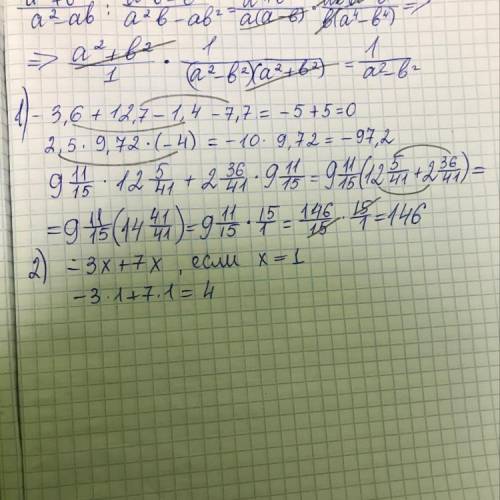 a² - ab : a²b - ab² = a(a-b) b(a⁴-b⁴) =>
=> a²+b²/1 · 1/(a²-b²)(a²+b²) = 1/a²-b²
1) -3,6 + 12,7 - 1,4 - 7,7 = -5+5=0
2,5 · 9,72 · (-4) = -10 · 9,72 = -97,2
9 11/15 · 12 5/41 + 2 36/41 · 9 11/15 = 9 11/15 (12 5/41 + 2 36/41) =
= 9 11/15 (14 41/41) = 9 11/15 · 15/1 = 146/15 · 15/1 = 146
2) -3x+7x, если x=1
-3·1+7·1=4